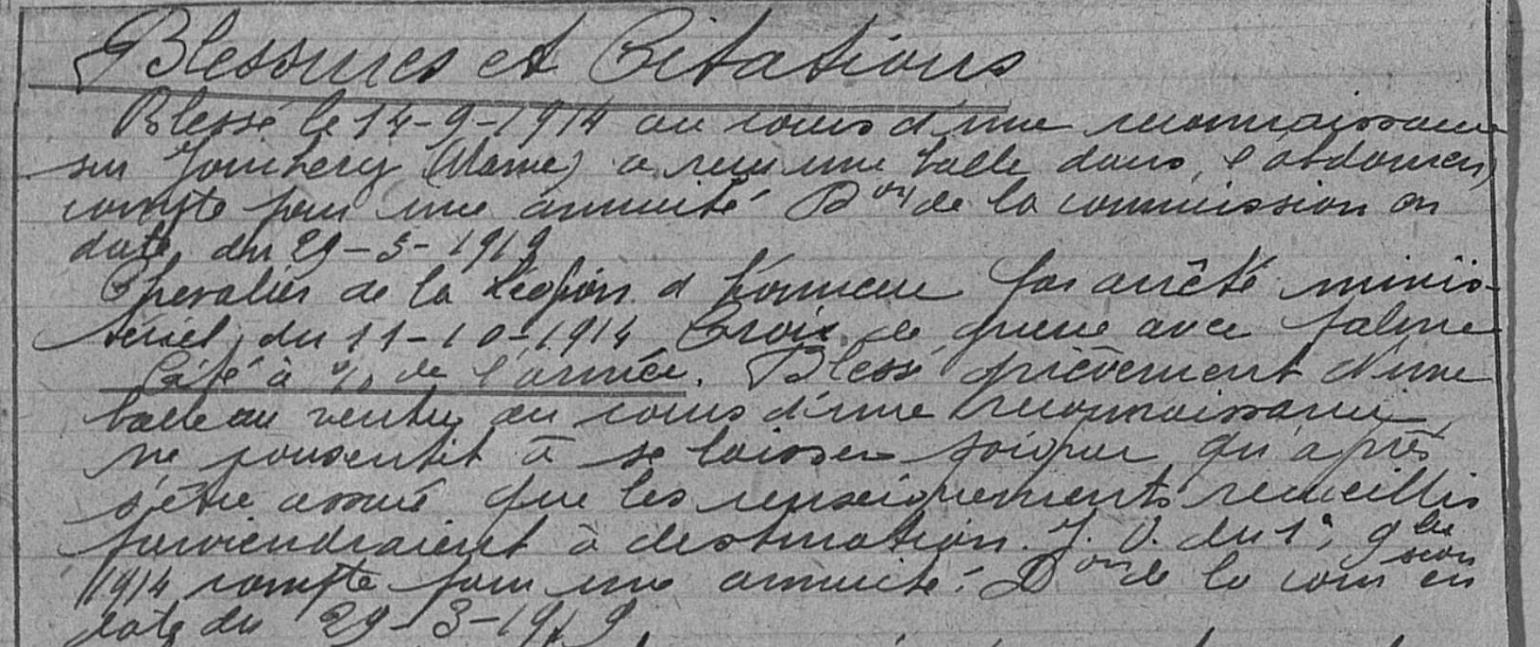 Blessures et Citations
Blessé le 14-9-1914 au cours d'une reconnaissance
sur Jonchery (Marne) a reçu une balle dans l'abdomen
compte pour une annuité Don de la commission en
date du 29-3-1919
Chevalier de la Légion d'honneur par arrêté minis-
tériel du 11-10-1914 Croix de guerre avec palme
Cité à l'o/ de l'armée. Blessé grièvement d'une
balle au ventre au cours d'une reconnaissance
ne consentit à se laisser soigner qu'après
s'être assuré que les renseignements recueillis
parviendraient à destination. J. O. du 1er 9bre
1914 compte pour une annuité. Don de la comsion en
date du 29-3-1919